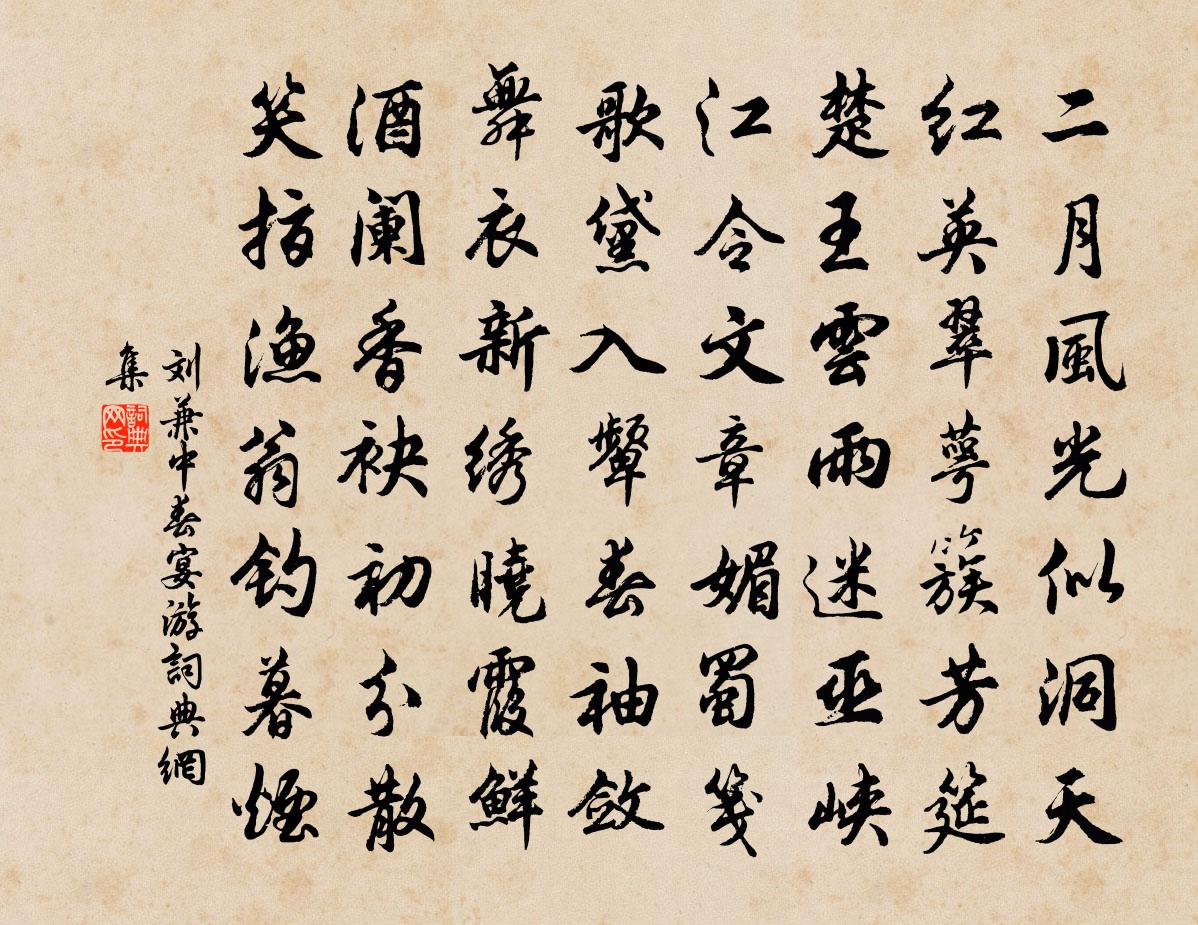 二月風光似洞天
红英翠萼簇芳筵
楚王雲雨迷巫峡
江令文章媚蜀笺
歌黛入颦春袖敛
舞衣新绣曉霞鲜
酒阑香袂初分散
笑指漁翁钓暮煙
刘兼中春宴游詞典網
集
詞典
网印